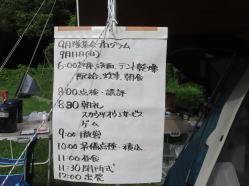 9月隊集会プログラム
9月11日(日)
6:00 起床、洗面、テント乾燥
配給、炊事、朝食
8:00 点検・講評
8:30 朝礼
スカウツオウンサービス
ゲーム
9:00 撤営
10:00 装備点検・積込
11:00 昼食
11:30 閉所式
12:00 出発